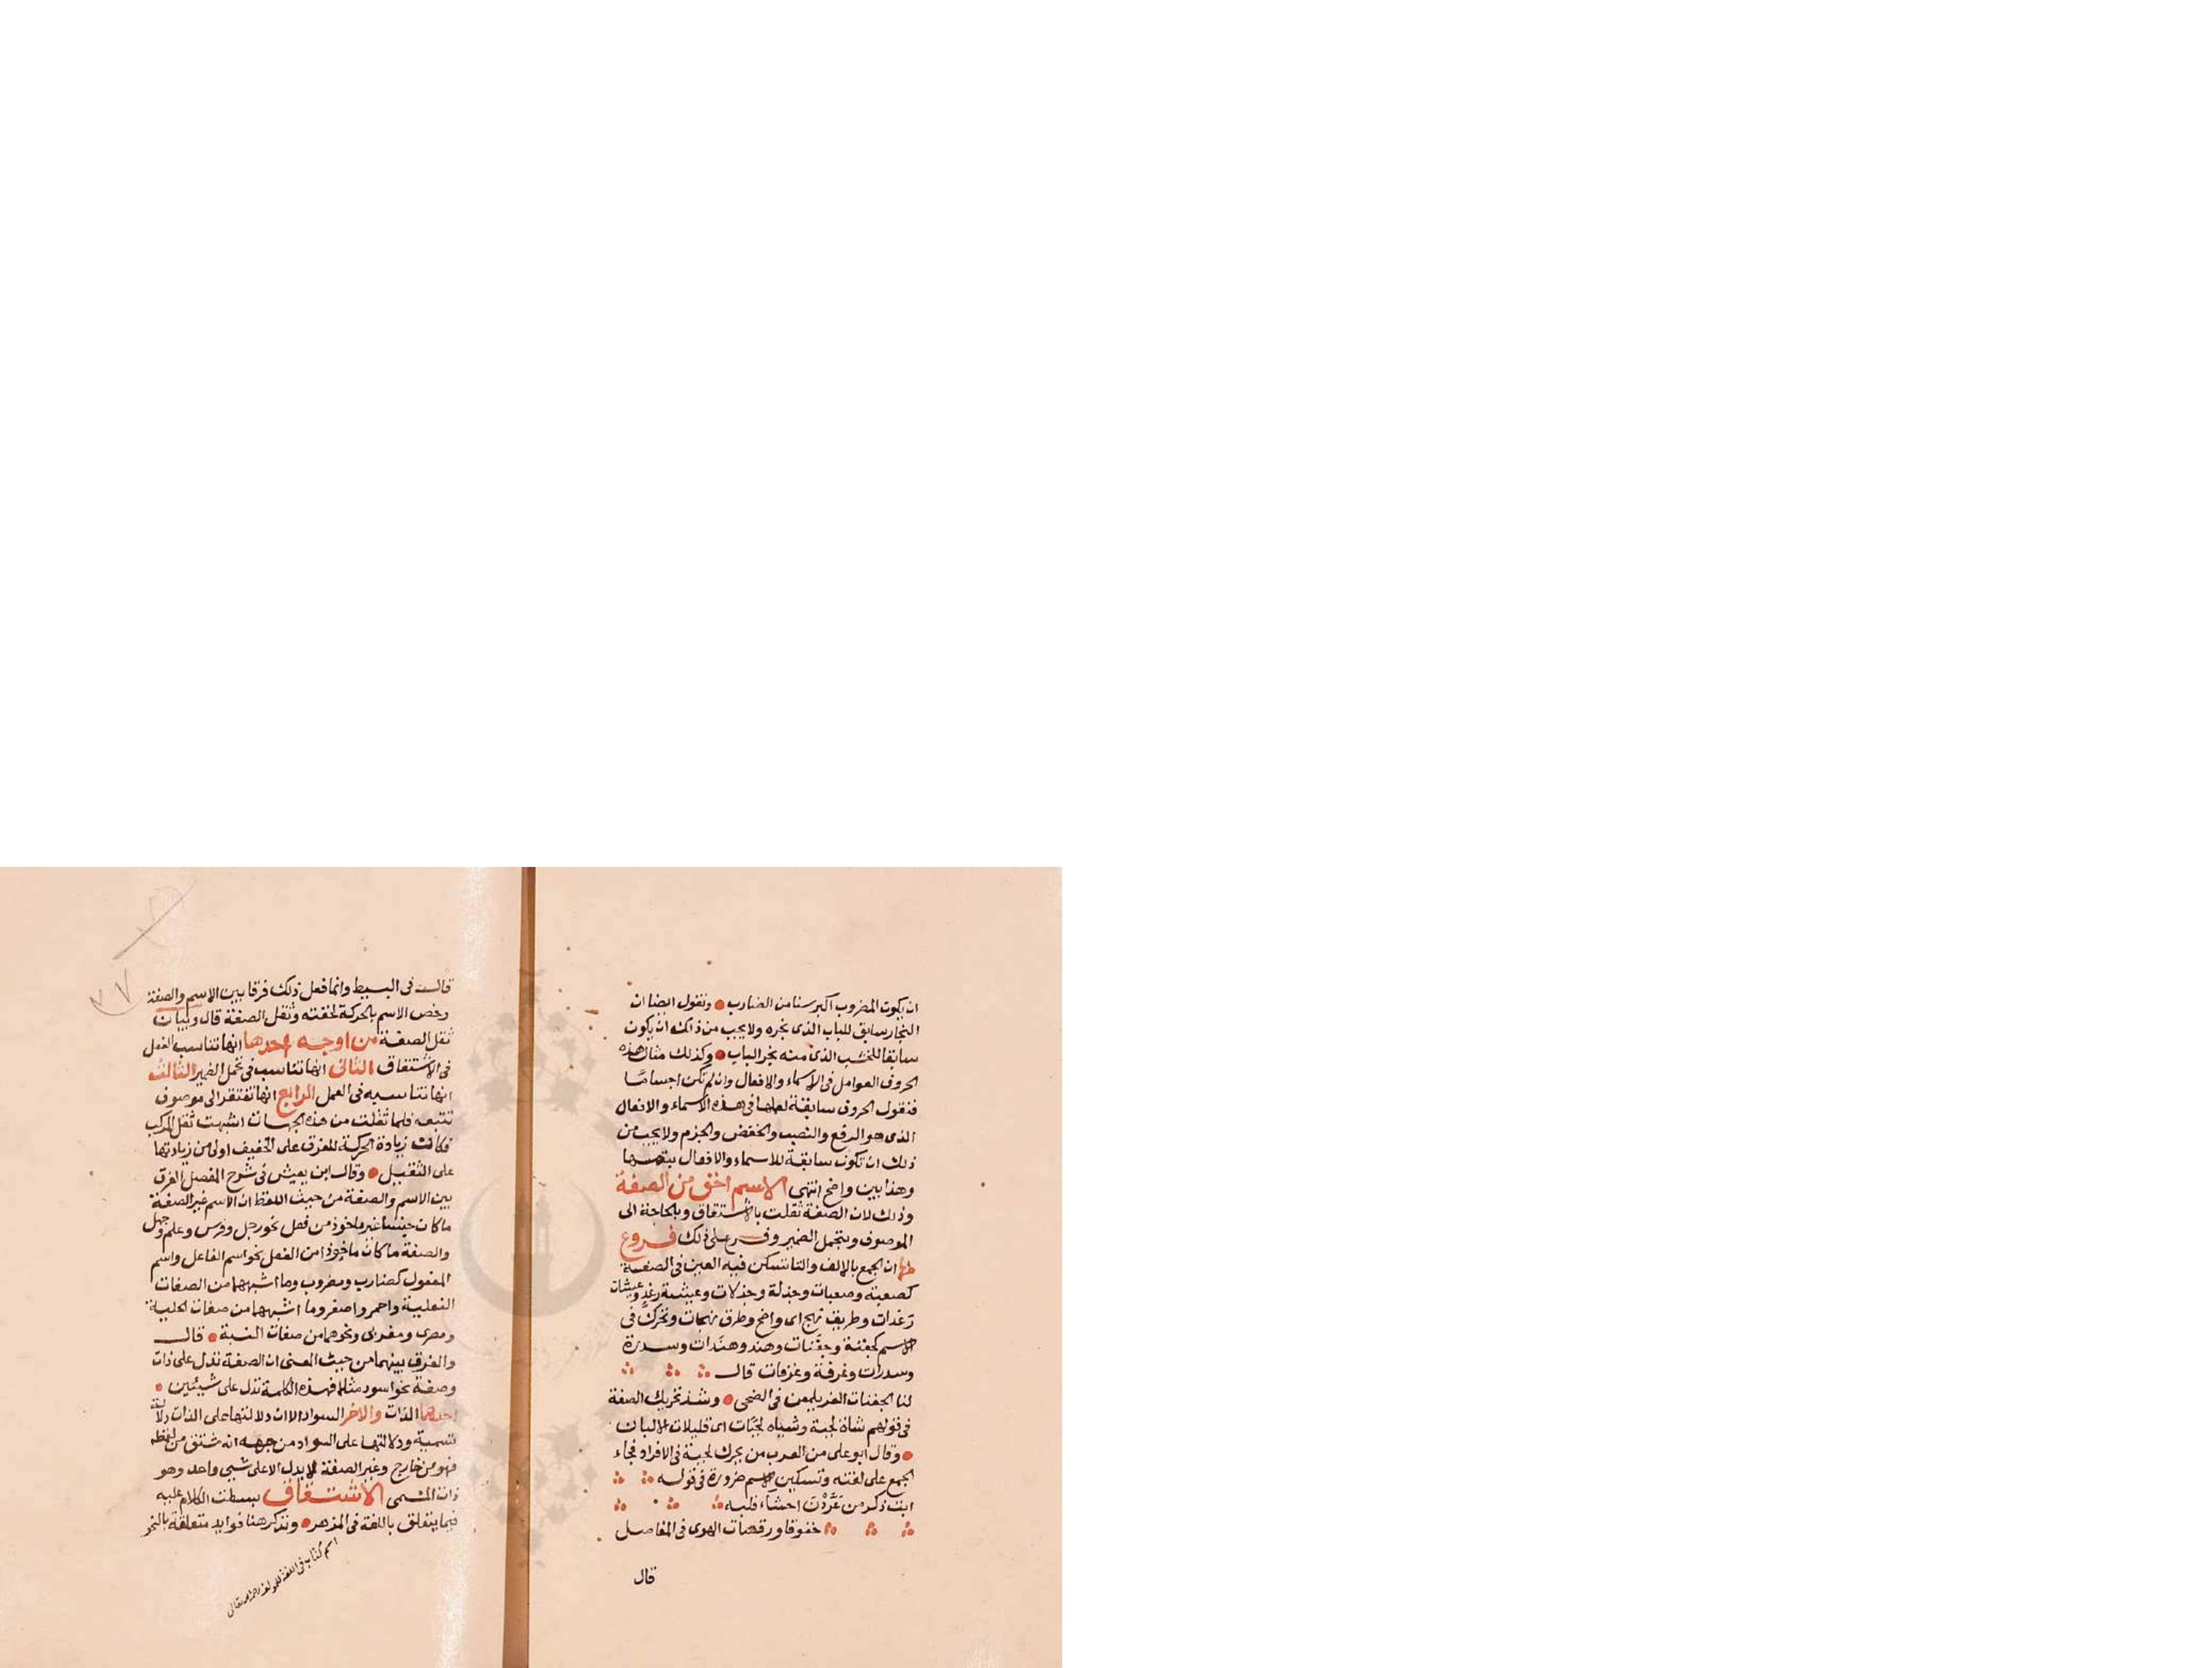 ان يكون المضروب اكبر سنا من الضارب ونقول ايضا ان
النجار سابق للباب الذى نجره ولا يجب من ذلك ان يكون
سابقا للخشب الذى منه نجر الباب وكذلك مثال هذه
الحروف العوامل فى الاسماء والافعال وان لم تكن اجساما
فنقول الحروف سابقة لعملها فى هذه الاسماء والافعال
الذى هو الرفع والنصب والخفض والجزم ولا يجب من
ذلك ان تكون سابقة للاسماء والافعال بنفسها
وهذا بين واضح انتهى الاسم اخف من الصفة
وذلك لان الصفة ثقلت بالاشتقاق وبالحاجة الى
الموصوف وبتحمل الضمير وفرع على ذلك فروع
منها ان الجمع بالالف والتا تسكن فيه العين فى الصفة
كصعبة وصعبات وخدلة وخدلات وعيشة رغد وعيشات
رغدات وطريق نهج اى واضح وطرق نهجات وتحرك فى
الاسم كجفنة وجفنات وهند وهندات وسدرة
وسدرات وغرفة وغرفات قال
لنا الجفنات الغر يلمعن فى الضحى وشذ تحريك الصفة
فى قولهم شاة لجبة وشياه لجبات اى قليلات الالبان
وقال ابو على من العرب من يحرك لجبة فى الافراد فجاء
الجمع على لغته وتسكين الاسم ضرورة فى قوله
ابت ذكر من عَوَّدْنَ احشاء قلبه
خفوقا ورقصات الهوى فى المفاصل
قال
قال فى البسيط وانما فعل ذلك فرقا بين الاسم والصفة
وخص الاسم بالحركة لخفته وثقل الصفة قال وبيان
ثقل الصفة من اوجه احدها انها تناسب الفعل
فى الاشتقاق الثانى انها تناسبه فى تحمل الضمير الثالث
انها تناسبه فى العمل الرابع انها تفتقر الى موصوف
تتبعه فلما ثقلت من هذه الجهات اشبهت ثقل المركب
فكانت زيادة الحركة للفرق على الخفيف اولى من زيادتها
على الثقيل وقال ابن يعيش فى شرح المفصل الفرق
بين الاسم والصفة من حيث اللفظ ان الاسم غير الصفة
ما كان جنسا غير ماخوذ من فعل نحو رجل وفرس وعلم وجهل
والصفة ما كان ماخوذا من الفعل نحو اسم الفاعل واسم
المفعول كضارب ومضروب وما اشبههما من الصفات
الفعلية واحمر واصفر وما اشبههما من صفات الحلية
ومصرى ومغربى ونحوهما من صفات النسبة قال
والفرق بينهما من حيث المعنى ان الصفة تدل على ذات
وصفة نحو اسود مثلا فهذه الكلمة تدل على شيئين
احدهما الذات والاخر السواد الا ان دلالتها على الذات دلالة
تسمية ودلالتها على السواد من جهة انه مشتق من لفظه
فهو من خارج وغير الصفة لا يدل الا على شيى واحد وهو
ذات المسمى الاشتقاق بسطت الكلام عليه
فيما يتعلق باللغة فى المزهر ونذكر هنا فوايد متعلقة بالنحو
اسم كتاب فى اللغة للمولف رحمه الله تعالى
٢٧